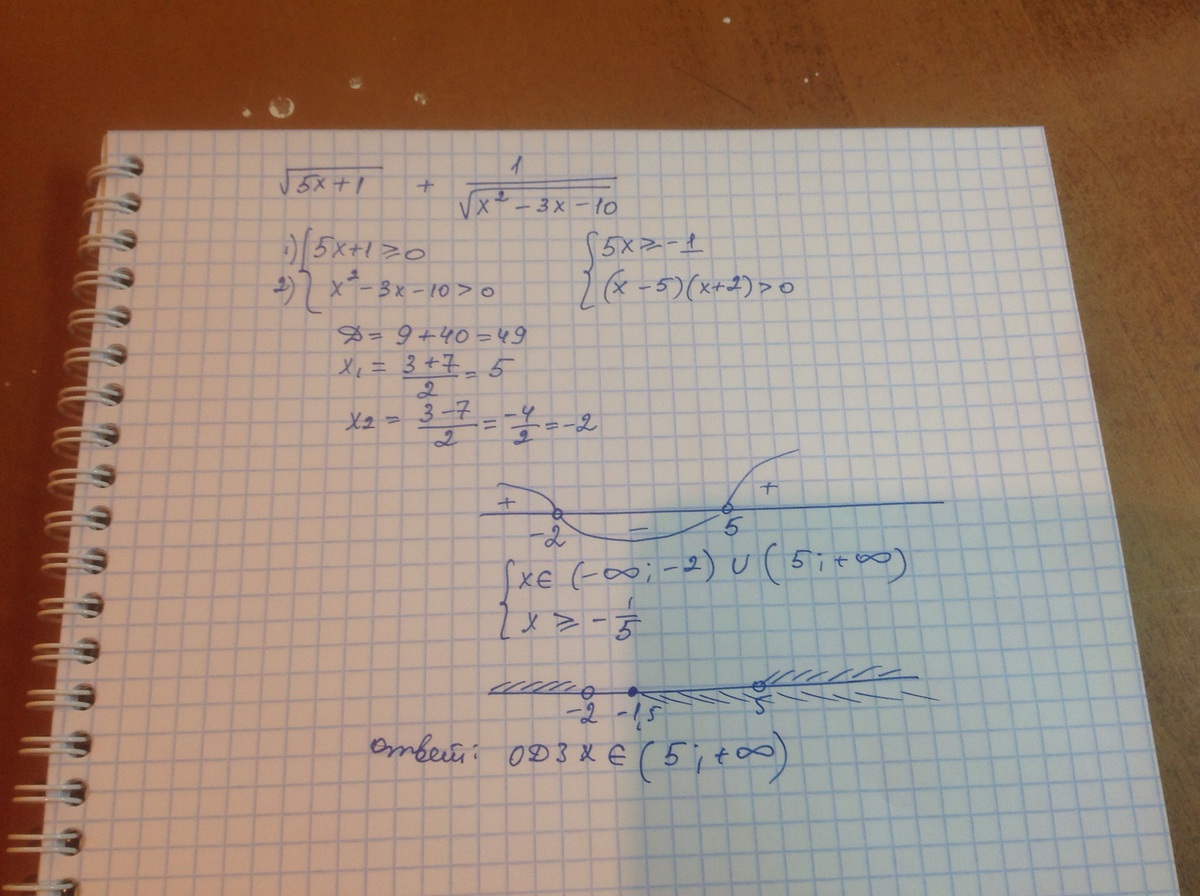 √(5x+1) + 1/√(x² − 3x − 10)
1) { 5x+1 ≥ 0 { 5x ≥ −1
2) { x² − 3x − 10 > 0 { (x − 5)(x+2) > 0
D = 9 + 40 = 49
x₁ = (3+7)/2 = 5
x2 = (3−7)/2 = −4/2 = −2
+ − +
−2 5
{ x ∈ (−∞; −2) ∪ (5; +∞)
{ x ≥ −1/5
−2 −1,5 5
Ответ: ОДЗ x ∈ (5; +∞)